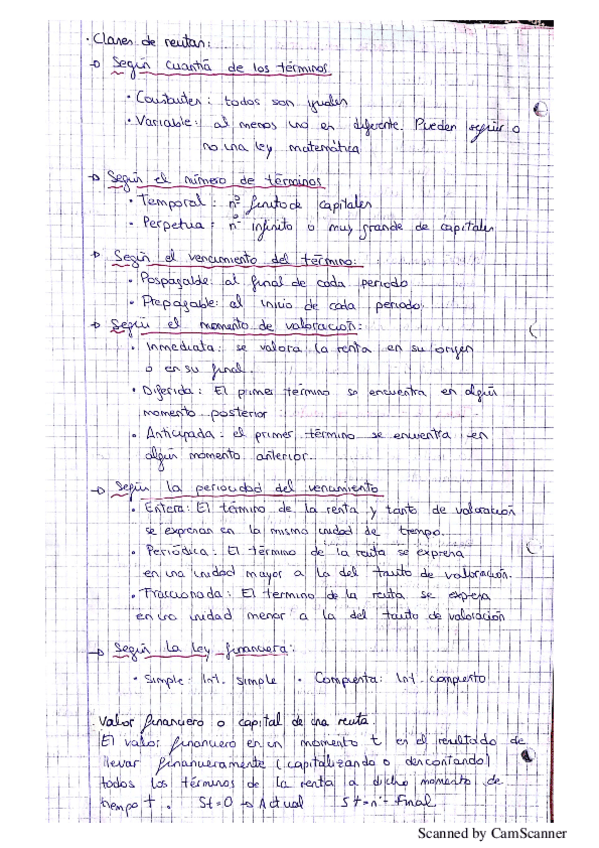 · Clases de rentas:
→ Según cuantía de los términos
· Constantes: todos son iguales
· Variable: al menos uno es diferente. Pueden seguir o
no una ley matemática
→ Según el número de términos
· Temporal: nº finito de capitales
· Perpetua: nº infinito o muy grande de capitales
→ Según el vencimiento del término:
· Pospagable: al final de cada periodo
· Prepagable: al inicio de cada periodo.
→ Según el momento de valoración:
· Inmediata: se valora la renta en su origen
o en su final.
· Diferida: El primer término se encuentra en algún
momento posterior
· Anticipada: el primer término se encuentra en
algún momento anterior.
→ Según la periocidad del vencimiento
· Entera: El término de la renta y tanto de valoración
se expresan en la misma unidad de tiempo.
· Periódica: El término de la renta se expresa
en una unidad mayor a la del tanto de valoración.
· Fraccionada: El termino de la renta se expresa
en una unidad menor a la del tanto de valoración
→ Según la ley financiera:
· Simple: Int. simple · Compuesta: Int. compuesto
Valor financiero o capital de una renta
El valor financiero en un momento t es el resultado de
llevar financieramente (capitalizando o descontando)
todos los términos de la renta a dicho momento de
tiempo t. Si t=0 → Actual Si t=n - Final
Scanned by CamScanner